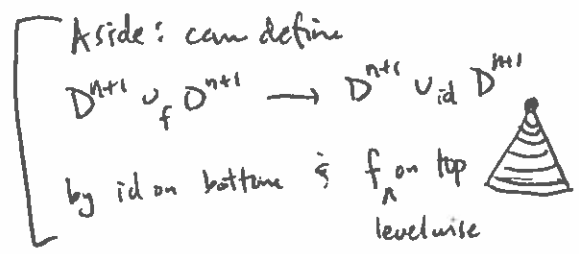 Aside: can define
D^{n+1} ∪_f D^{n+1} → D^{n+1} ∪_{id} D^{n+1}
by id on bottom & f on top
levelwise